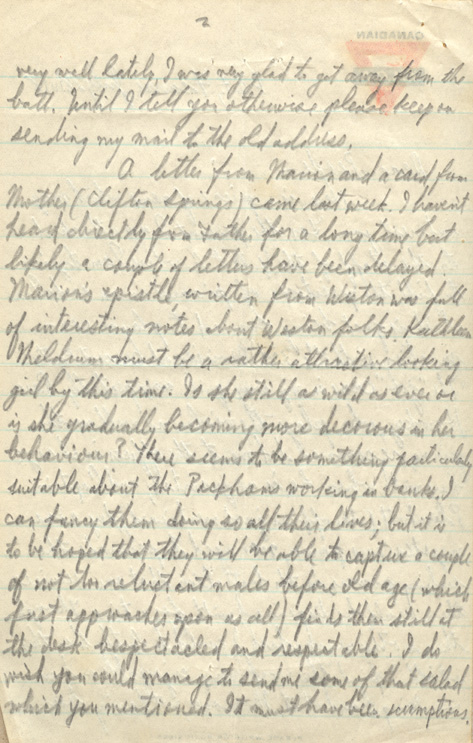 2
CANADIAN
very well lately, I was very glad to get away from the
batt. Until I tell you otherwise please keep on
sending my mail to the old address.
A letter from Marion and a card from
Mother (Clifton Springs) came last week. I haven't
heard directly from Father for a long time but
likely a couple of letters have been delayed.
Marion's epistle, written from Weston was full
of interesting notes about Weston folks. Kathleen
Meldrum must be a rather attractive looking
girl by this time. Is she still as wild as ever or
is she gradually becoming more decorous in her
behaviour? There seems to be something particularly
suitable about the Packhams working in banks. I
can fancy them doing so all their lives; but it is
to be hoped that they will be able to capture a couple
of not too reluctant males before old age (which
fast approaches upon us all) finds them still at
the desk bespectacled and respectable. I do
wish you could manage to send me some of that salad
which you mentioned. It must have been scrumptious.